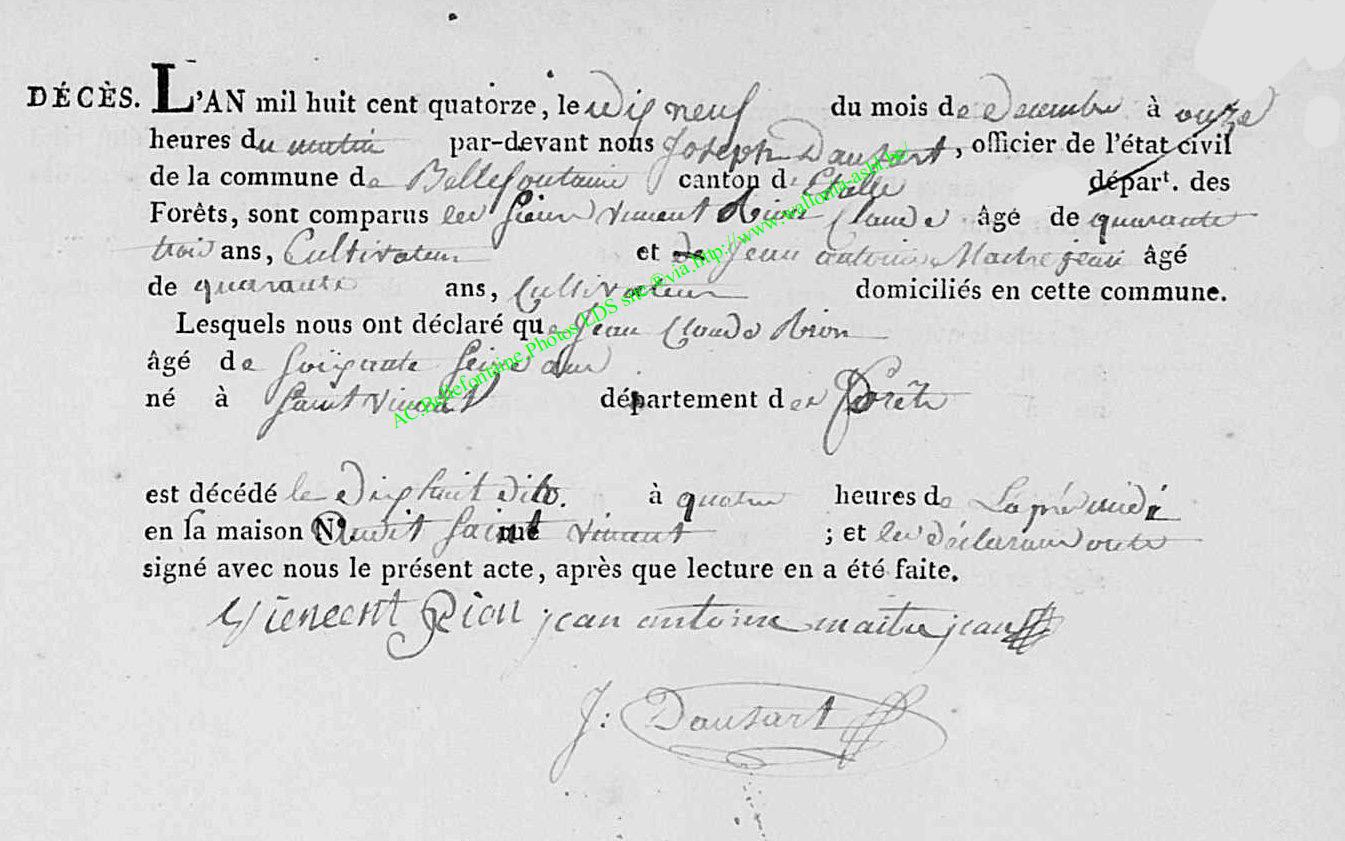 DÉCÈS. L'AN mil huit cent quatorze, le dix neuf du mois de decembre à onze
heures du matin par-devant nous Joseph Dausart, officier de l'état civil
de la commune de Bellefontaine canton d'Etalle départ. des
Forêts, sont comparus les Sieurs Vincent Rion Claude âgé de quarante
trois ans, Cultivateur et de Jean antoine Maitrejean âgé
de quarante ans, Cultivateur domiciliés en cette commune.
Lesquels nous ont déclaré que Jean Claude Rion
âgé de soixante seize ans
né à Saint Vincent département des Forêts
est décédé le dix huit dito. à quatre heures de La prémidi
en sa maison N° audit Saint rue Vincent ; et les déclarans onts
signé avec nous le présent acte, après que lecture en a été faite.
Viencent Rion jean antoine maitrejean
J: Dausart
AC.Bellefontaine.Photos LDS site®via.http://www.wallonia-asbl.be/